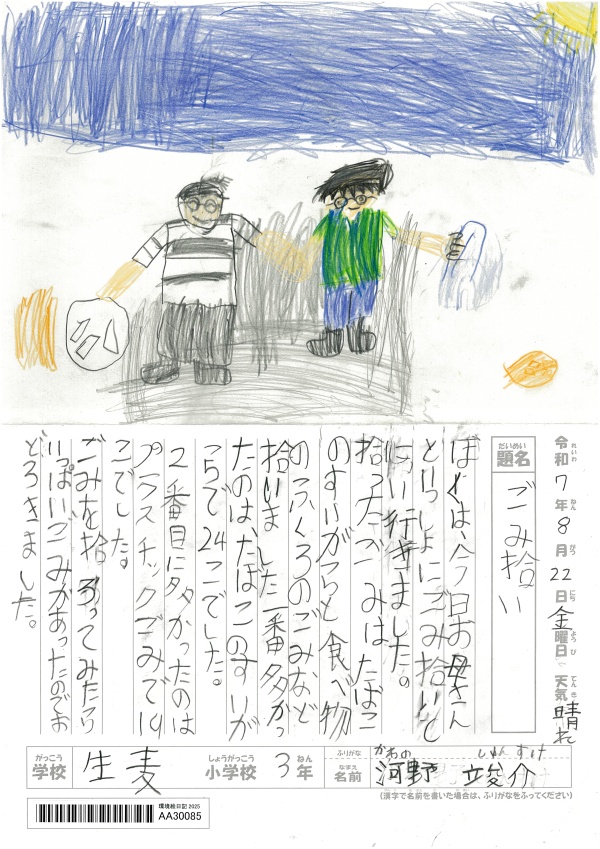 令和7年8月22日金曜日 天気晴れ
れいわ ねん がつ にち ようび てんき
だいめい
題名 ごみ拾い
ぼくは、今日お母さん
といっしょにごみ拾いを
しに行きました。
拾ったごみはたばこ
のすいがらと食べ物
のふくろのごみなど
拾いました一番多かっ
たのは、たばこのすいが
らで24こでした。
2番目に多かったのは
プラスチックごみで14
こでした。
ごみを拾ってみたら
いっぱいごみがあったのでお
どろきました。
がっこう しょうがっこう ねん ふりがな かわの しゅんすけ
学校 生麦 小学校 3年 なまえ 名前 河野 竣介
(漢字で名前を書いた場合は、ふりがなをふってください)
環境絵日記 2025
AA30085